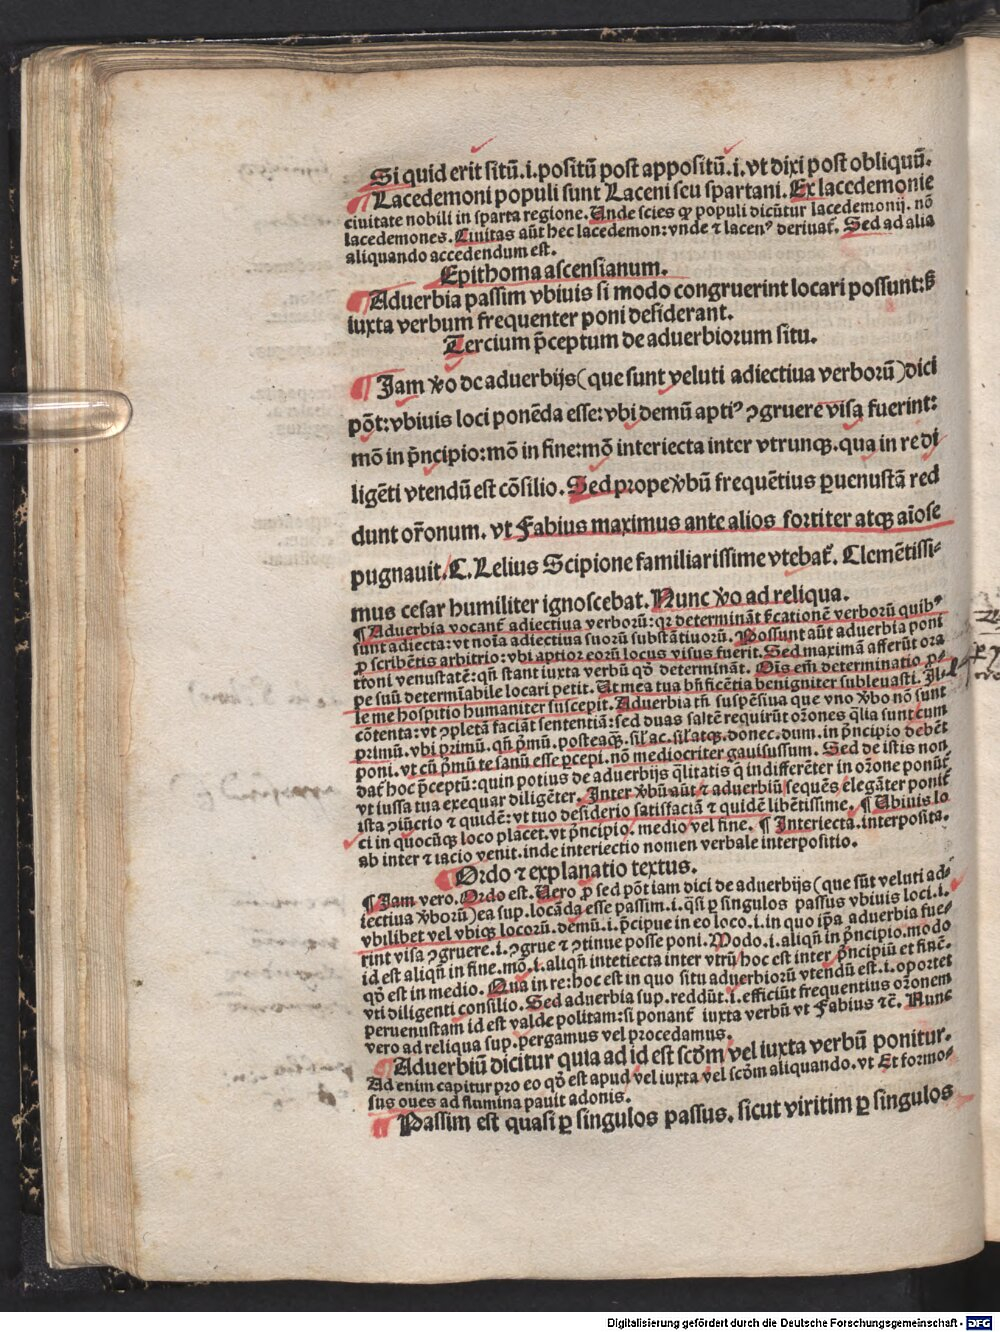 Si quid erit sitū.i.positū post appositū.i.vt dixi post obliquū.
¶ Lacedemoni populi sunt Laceni seu spartani. Ex lacedemonie
ciuitate nobili in sparta regione. Unde scies ꝙ populi dicūtur lacedemonij. nō
lacedemones. Ciuitas aūt hec lacedemon: vnde ⁊ lacenꝰ deriuat̄. Sed ad alia
aliquando accedendum est.
Epithoma ascensianum.
¶ Aduerbia passim vbiuis si modo congruerint locari possunt: s̄
iuxta verbum frequenter poni desiderant.
Tercium p̄ceptum de aduerbiorum situ.
¶ Jam v̆o de aduerbijs (que sunt veluti adiectiua verborū) dici
pōt: vbiuis loci ponēda esse: vbi demū aptiꝰ ꝯgruere visa fuerint:
mō in p̄ncipio: mō in fine: mō interiecta inter vtrunqꝫ. qua in re di
ligēti vtendū est cōsilio. Sed prope v̆bū frequētius ꝑuenustā red
dunt or̄onum. vt Fabius maximus ante alios fortiter atqꝫ aīose
pugnauit. C. Lelius Scipione familiarissime vtebat̄. Clemētissi⸗
mus cesar humiliter ignoscebat. Nunc v̆o ad reliqua.
¶ Aduerbia vocant̄ adiectiua verborū: qꝛ determināt s̄cationē verborū quibꝰ
sunt adiecta: vt noīa adiectiua suorū substātiuorū. Possunt aūt aduerbia poni
ꝓ scribētis arbitrio: vbi aptior eorū locus visus fuerit. Sed maximā afferūt ora
tioni venustatē: qn̄ stant iuxta verbū qd̄ determināt. Oīs em̄ determinatio ꝓ⸗
pe suū determīabile locari petit. Ut mea tua bn̄ficētia benigniter subleuasti. Jl⸗
le me hospitio humaniter suscepit. Aduerbia tn̄ suspēsiua que vno v̆bo nō sunt
cōtenta: vt ꝯpletā faciāt sententiā: sed duas saltē requirūt or̄ones q̄lia sunt cum
primū. vbi primū. qn̄ p̄mū. posteaqꝫ. sil̄ ac. sil̄ atqꝫ. donec. dum. in p̄ncipio debēt
poni. vt cū p̄mū te sanū esse ꝑcepi. nō mediocriter gauisussum. Sed de istis non
dat̄ hoc p̄ceptū: quin potius de aduerbijs q̄litatis q̄ indifferēter in or̄one ponūt̄
vt iussa tua exequar diligēter. Inter v̆bū aūt ⁊ aduerbiū sequēs elegāter ponit̄
ista ꝯiūctio ⁊ quidē: vt tuo desiderio satisfaciā ⁊ quidē libētissime. ¶ Ubiuis lo
ci in quocūqꝫ loco placet. vt p̄ncipio. medio vel fine. ¶ Interiecta. interposita.
ab inter ⁊ iacio venit. inde interiectio nomen verbale interpositio.
Ordo ⁊ explanatio textus.
¶ Jam vero. Ordo est. Uero ꝓ sed pōt iam dici de aduerbijs (que sūt veluti ad⸗
iectiua v̆borū) ea sup. locāda esse passim.i. q̄si ꝑ singulos passus vbiuis loci.i.
vbilibet vel vbiqꝫ locorū. demū.i. p̄cipue in eo loco.i. in quo ip̄a aduerbia fue⸗
rint visa ꝯgruere.i. ꝯgrue ⁊ ꝯtinue posse poni. Modo.i. aliqn̄ in p̄ncipio. modo
id est aliqn̄ in fine. mō.i. aliqn̄ intetiecta inter vtrū hoc est inter p̄ncipiū et finē.
qd̄ est in medio. Qua in re: hoc est in quo situ aduerbiorū vtendū est.i. oportet
vti diligenti consilio. Sed aduerbia sup. reddūt.i. efficiūt frequentius or̄onem
peruenustam id est valde politam: si ponant̄ iuxta verbū vt Fabius ⁊c̄. Nunc
vero ad reliqua sup. pergamus vel procedamus.
¶ Aduerbiū dicitur quia ad id est scd̄m vel iuxta verbū ponitur.
Ad enim capitur pro eo qd̄ est apud vel iuxta vel scd̄m aliquando. vt Et formo⸗
sus oues ad flumina pauit adonis.
¶ Passim est quasi ꝑ singulos passus. sicut viritim ꝑ singulos
Digitalisierung gefördert durch die Deutsche Forschungsgemeinschaft - DFG